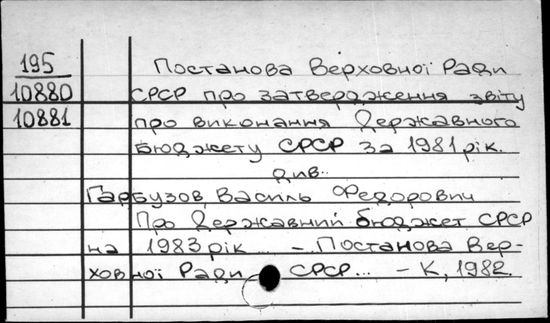 195 Постанова Верховної Ради
10880 СРСР про затвердження звіту
10881 про виконання Державного
бюджету СРСР за 1981 рік.
див..
Гарбузов, Василь Федорович
Про Державний бюджет СРСР
на 1983 рік ... – Постанова Вер-
ховної Ради СРСР... – К, 1982.